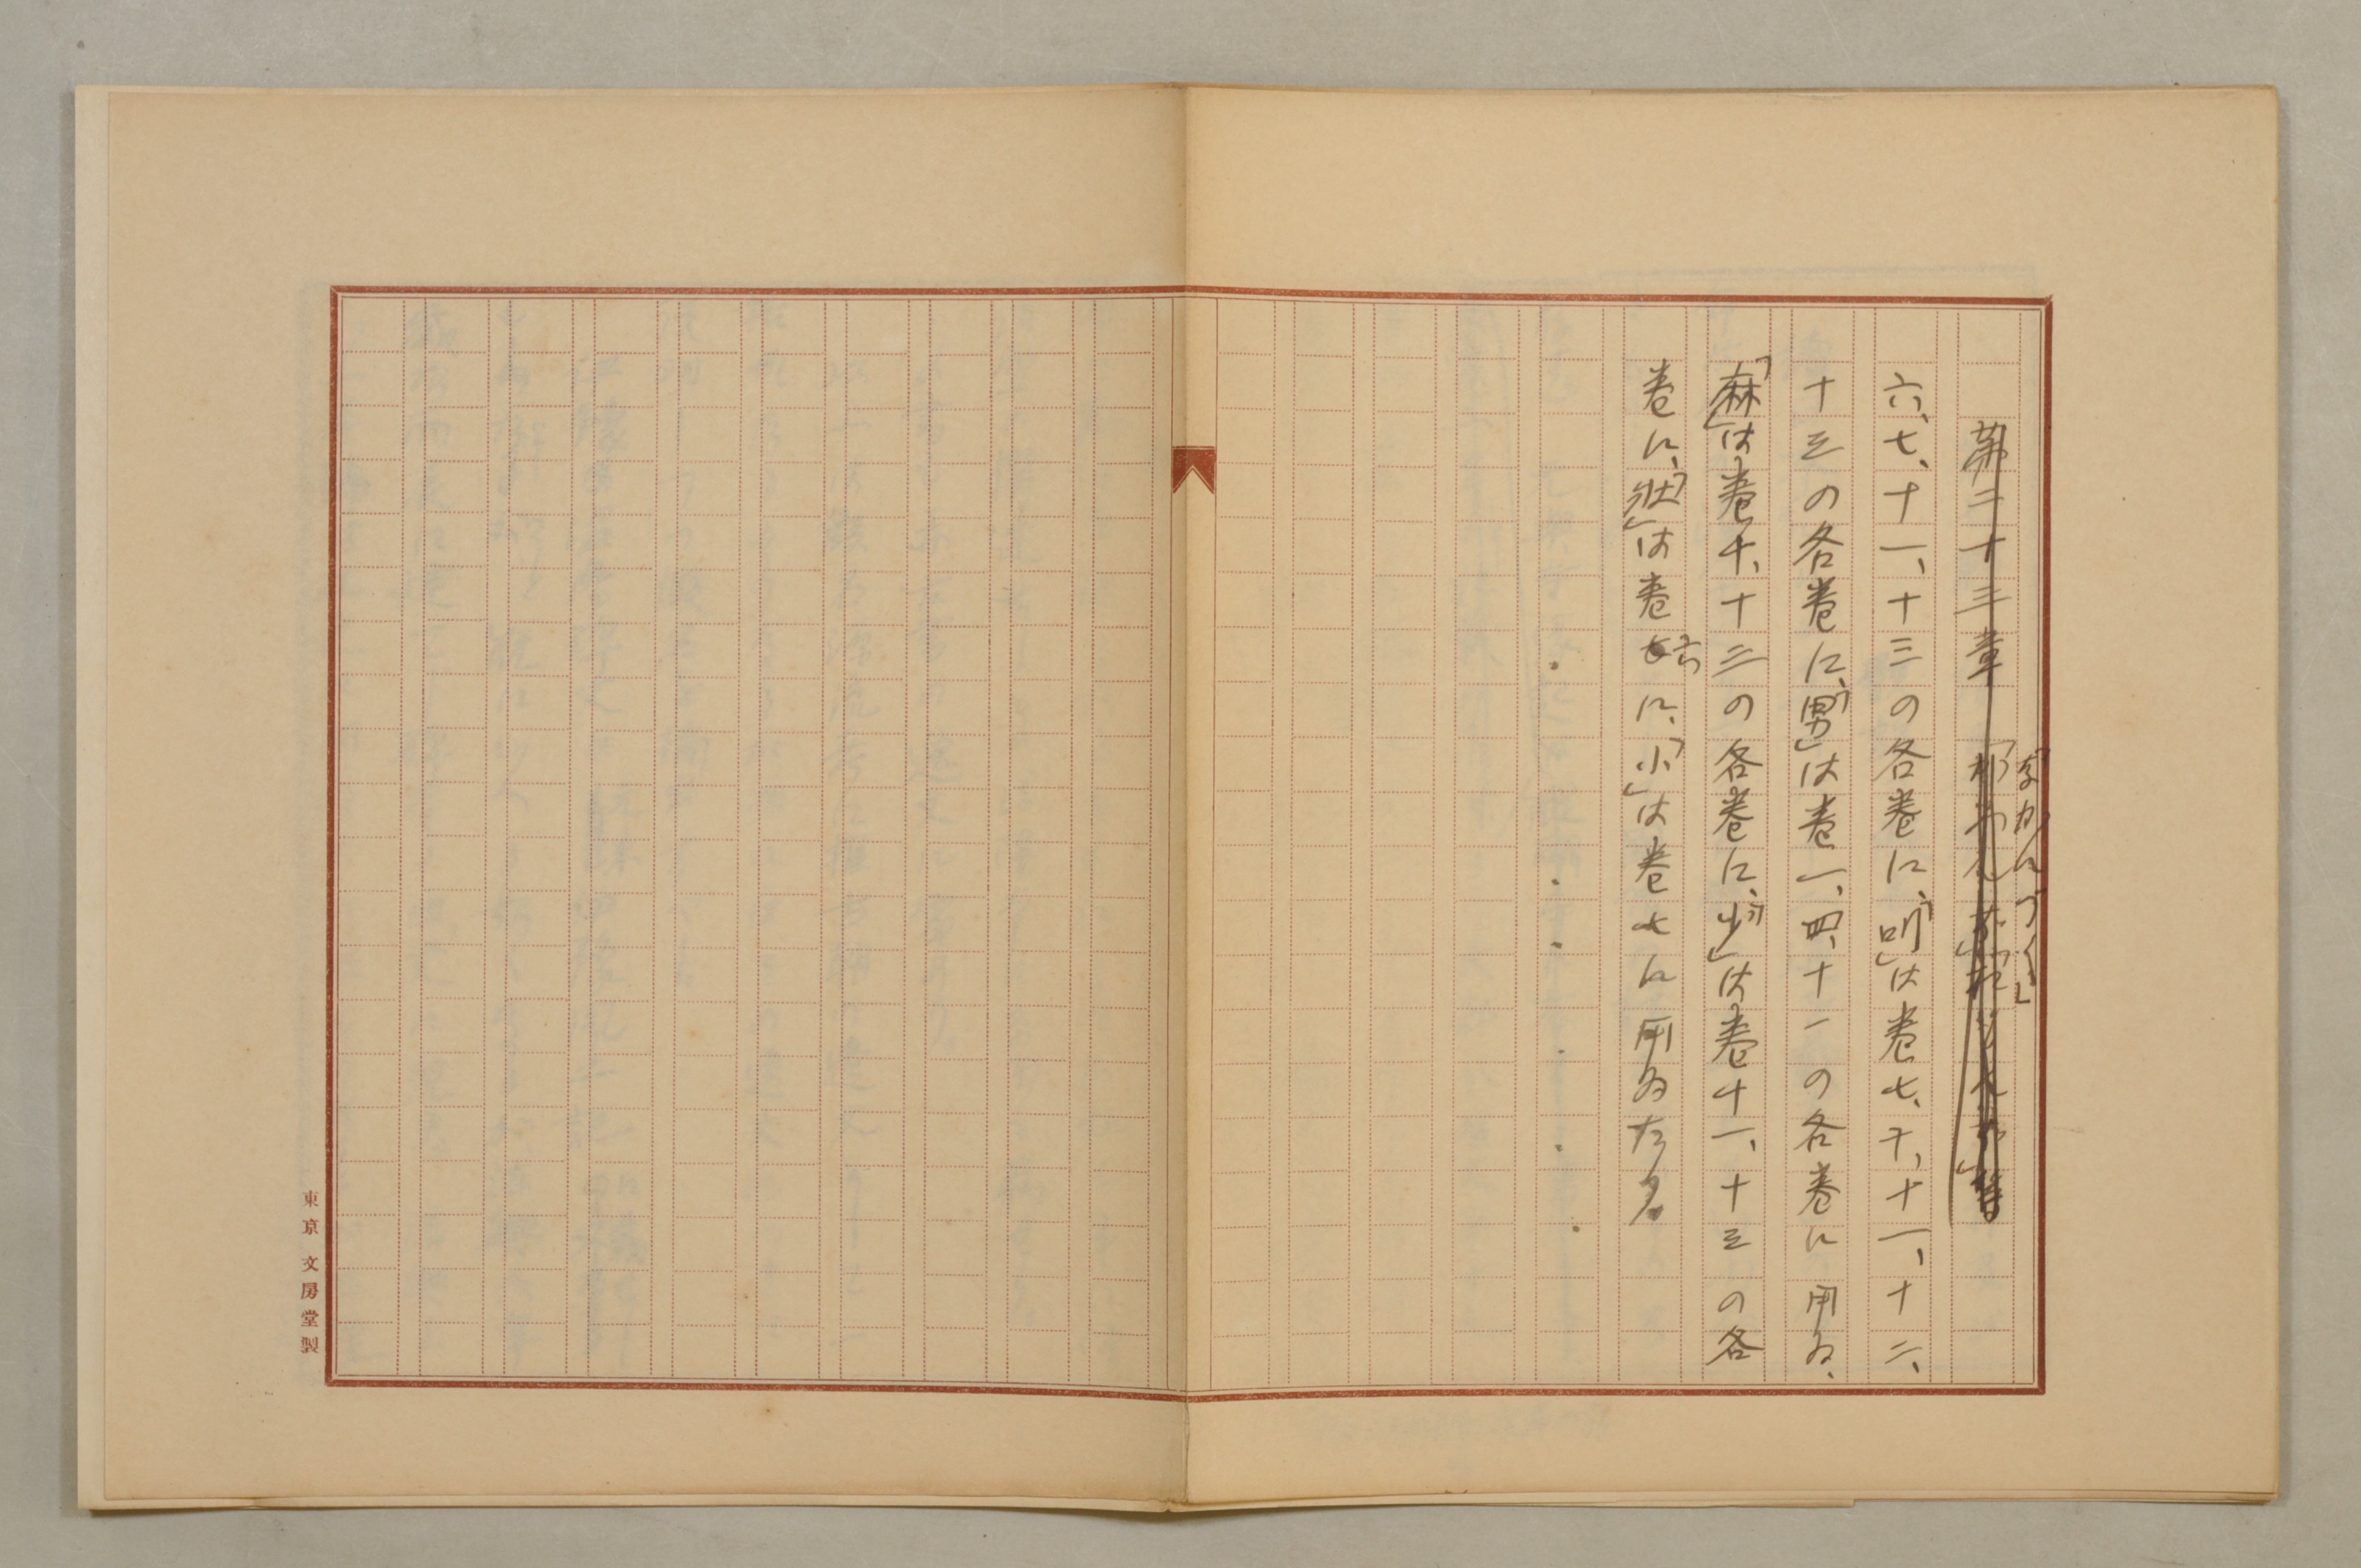 第二十三章
六、七、十一、十三の各巻に、「叫」は巻七、十、十一、十二、
十三の各巻に、「男」は巻一、四、十一の各巻に用ゐ、
「麻」は巻十、十三の各巻に、「少」は巻十一、十三の各
巻に、「壯」は巻六に、「小」は巻七に用ゐたり。
東京 文房堂製